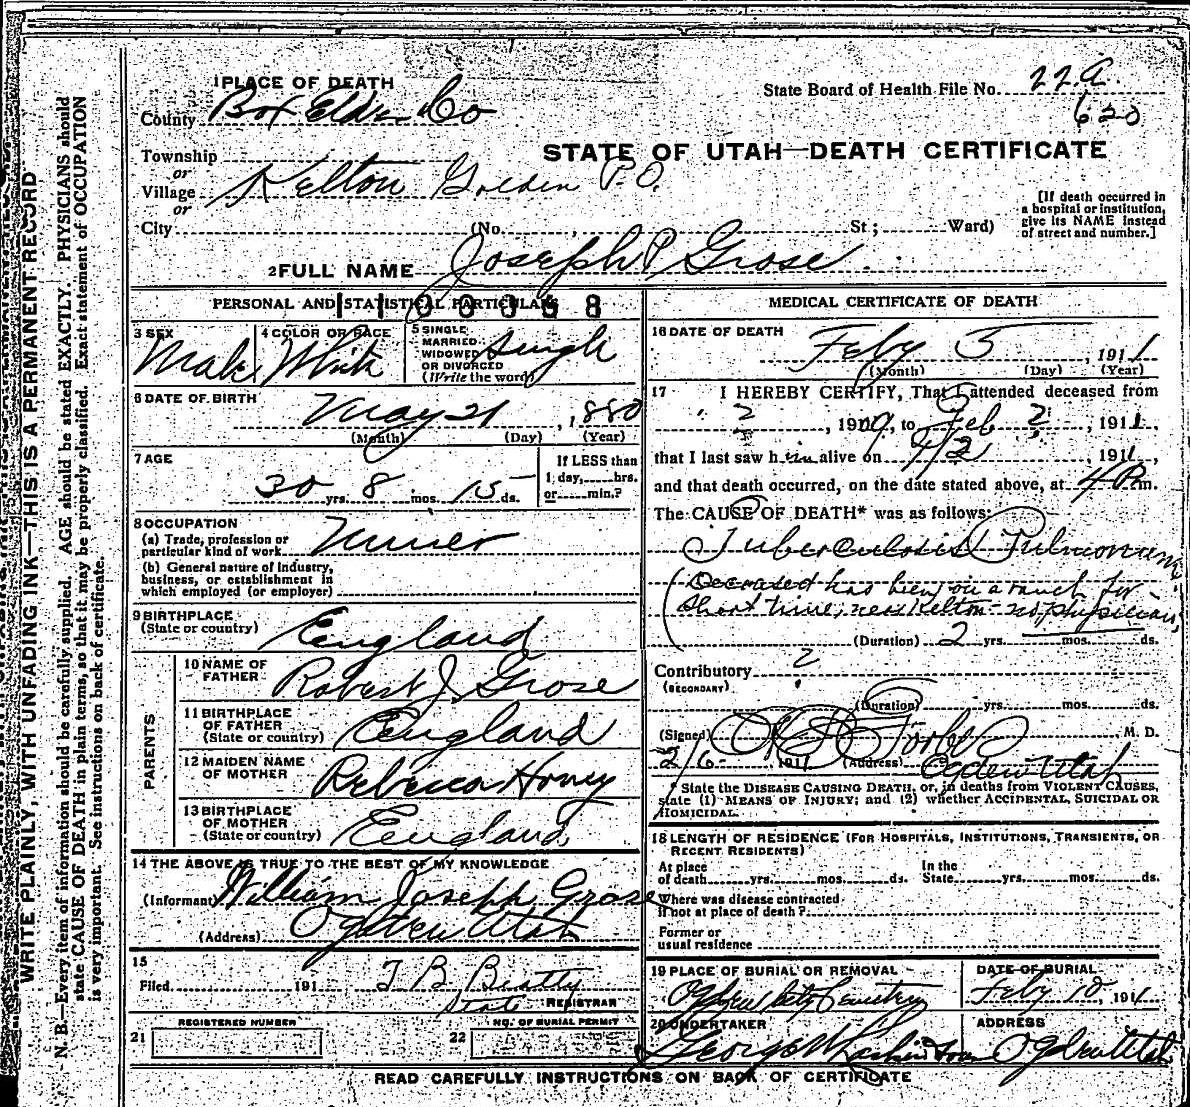 1 PLACE OF DEATH
State Board of Health File No. 22 A
620
County Box Elder Co
STATE OF UTAH—DEATH CERTIFICATE
Township
or
Village Kelton Golden P.O.
or
City (No. , St ; Ward)
[If death occurred in
a hospital or institution,
give its NAME instead
of street and number.]
2 FULL NAME Joseph P Grose
PERSONAL AND STATISTICAL PARTICULARS
3 SEX Male
4 COLOR OR RACE White
5 SINGLE
MARRIED
WIDOWED
OR DIVORCED
(Write the word) Single
6 DATE OF BIRTH
May 21, 1880
(Month) (Day) (Year)
7 AGE
30 yrs. 8 mos. 15 ds.
If LESS than
1 day, hrs.
or min.?
8 OCCUPATION
(a) Trade, profession or
particular kind of work Miner
(b) General nature of industry,
business, or establishment in
which employed (or employer)
9 BIRTHPLACE
(State or country) England
PARENTS
10 NAME OF
FATHER Robert J. Grose
11 BIRTHPLACE
OF FATHER
(State or country) England
12 MAIDEN NAME
OF MOTHER Rebecca Honey
13 BIRTHPLACE
OF MOTHER
(State or country) England
14 THE ABOVE IS TRUE TO THE BEST OF MY KNOWLEDGE
(Informant) William Joseph Grose
(Address) Ogden Utah
15
Filed 191 T B Beatty
State REGISTRAR
21 REGISTERED NUMBER
22 NO. OF BURIAL PERMIT
MEDICAL CERTIFICATE OF DEATH
16 DATE OF DEATH
Feby 5, 1911
(Month) (Day) (Year)
17 I HEREBY CERTIFY, That I attended deceased from
?, 1909, to Feb ?, 1911,
that I last saw him alive on , 1911,
and that death occurred, on the date stated above, at 4 P m.
The CAUSE OF DEATH* was as follows:
Tuberculosis Pulmonum
(Deceased has been on a ranch for
short time, near Kelton - no physician,
(Duration) 2 yrs. mos. ds.
Contributory ?
(SECONDARY)
(Duration) yrs. mos. ds.
(Signed) Forbes M. D.
2/6 1911 (Address) Ogden Utah
* State the DISEASE CAUSING DEATH, or, in deaths from VIOLENT CAUSES,
state (1) MEANS OF INJURY; and (2) whether ACCIDENTAL, SUICIDAL OR
HOMICIDAL.
18 LENGTH OF RESIDENCE (FOR HOSPITALS, INSTITUTIONS, TRANSIENTS, OR
RECENT RESIDENTS)
At place
of death yrs. mos. ds.
In the
State yrs. mos. ds.
Where was disease contracted
if not at place of death?
Former or
usual residence
19 PLACE OF BURIAL OR REMOVAL
Ogden City Cemetery
DATE OF BURIAL
Feby 10, 1911
20 UNDERTAKER
George W Larkin & Sons
ADDRESS
Ogden Utah
READ CAREFULLY INSTRUCTIONS ON BACK OF CERTIFICATE
WRITE PLAINLY, WITH UNFADING INK—THIS IS A PERMANENT RECORD
N. B.—Every item of information should be carefully supplied. AGE should be stated EXACTLY. PHYSICIANS should
state CAUSE OF DEATH in plain terms, so that it may be properly classified. Exact statement of OCCUPATION
is very important. See instructions on back of certificate.